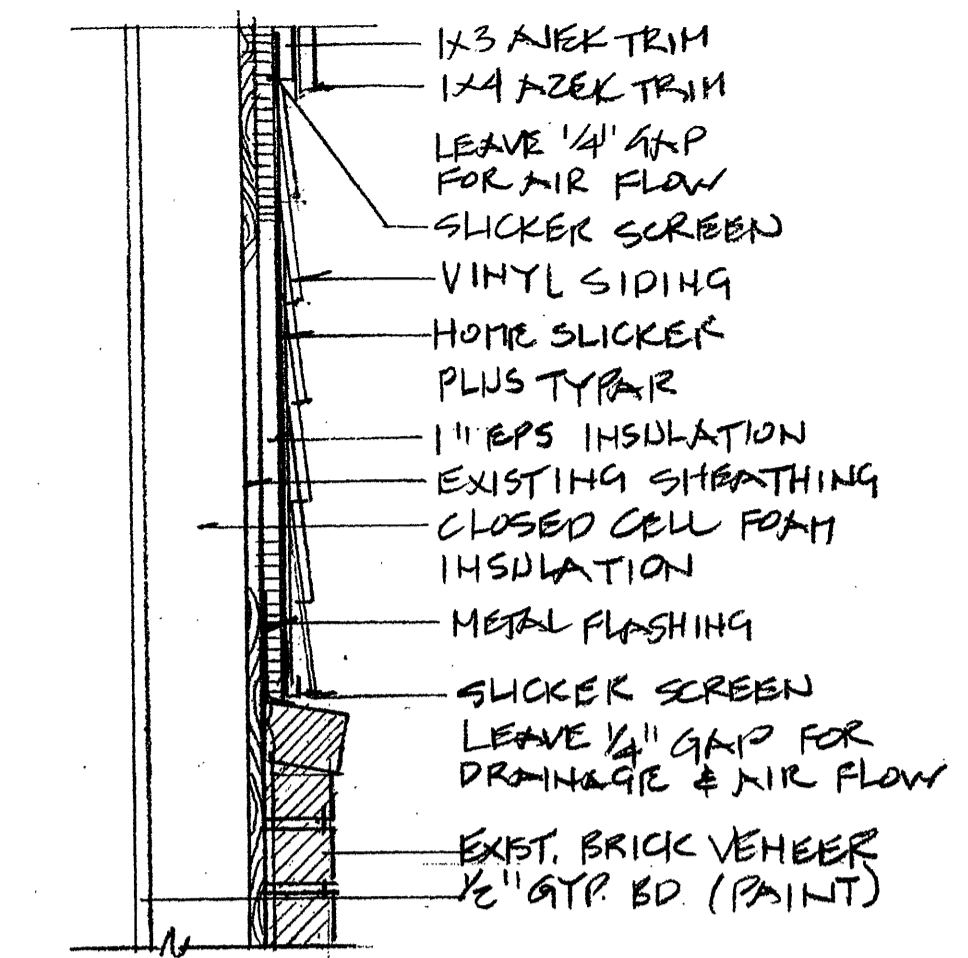 1X3 AZEK TRIM
1X4 AZEK TRIM
LEAVE 1/4" GAP
FOR AIR FLOW
SLICKER SCREEN
VINYL SIDING
HOME SLICKER
PLUS TYPAR
1" EPS INSULATION
EXISTING SHEATHING
CLOSED CELL FOAM
INSULATION
METAL FLASHING
SLICKER SCREEN
LEAVE 1/4" GAP FOR
DRAINAGE & AIR FLOW
EXIST. BRICK VENEER
1/2" GYP. BD. (PAINT)